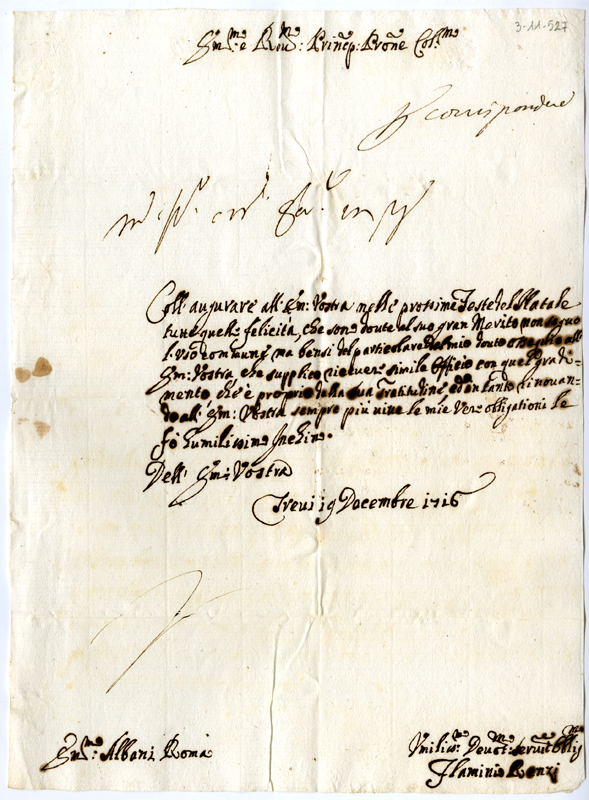 3-11-527
Em:mo e Rou:mo Prinēp: Prōne Col:mo
corrispondere
Coll' augurare all' Em: Vostra nelle prossime Feste del Natale
tutte quelle felicità, che sono doute al suo gran Merito non seguo
l' uso commune ma bensi del particolare del mio douto ossequio all'
Em: Vostra che supplico riceuere simile Officio con quel gradi=
mento ch' è proprio della sua Gratitudine ed in tanto rinouan=
do all' Em: Vostra sempre più uiue le mie Vere obligationi le
fò humilissimo Inchino.
Dell' Em: Vostra
Treui 19 Decembre 1716
Em:mo Albani Roma
Vmilis:mo Deuot:mo seruit:e Oblig:mo
Flaminio Renzi